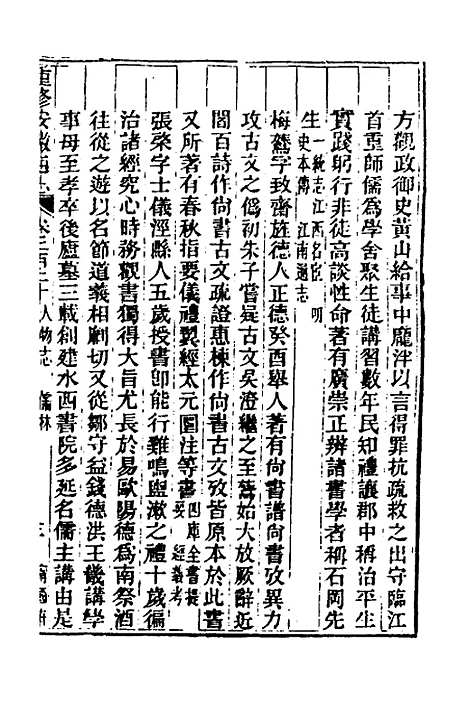 方觀政御史黃山給事中龐泮以言得罪抗疏救之出守臨江
首重師儒為學舍聚生徒講習數年民知禮讓郡中稱治平生
實踐躬行非徒高談性命著有廣崇正辨諸書學者稱石岡先
生一統志江西名宦 明史本傳 江南通志
梅鷟字致齋旌德人正德癸酉舉人著有尚書譜尚書攷異力
攻古文之偽初朱子嘗疑古文吳澄繼之至鷟始大放厥辭近
閻百詩作尚書古文疏證惠棟作尚書古文攷皆原本於此書
又所著有春秋指要儀禮翼經太元圖注等書四庫全書提要 經義考
張棨字士儀涇縣人五歲授書即能行雞鳴盥漱之禮十歲徧
治諸經究心時務觀書獨得大旨尤長於易歐陽德為南祭酒
往從之遊以名節道義相劘切又從鄒守益錢德洪王畿講學
事母至孝卒後廬墓三載創建水西書院多延名儒主講由是
重修安徽通志 卷二百二十 人物志 儒林 三